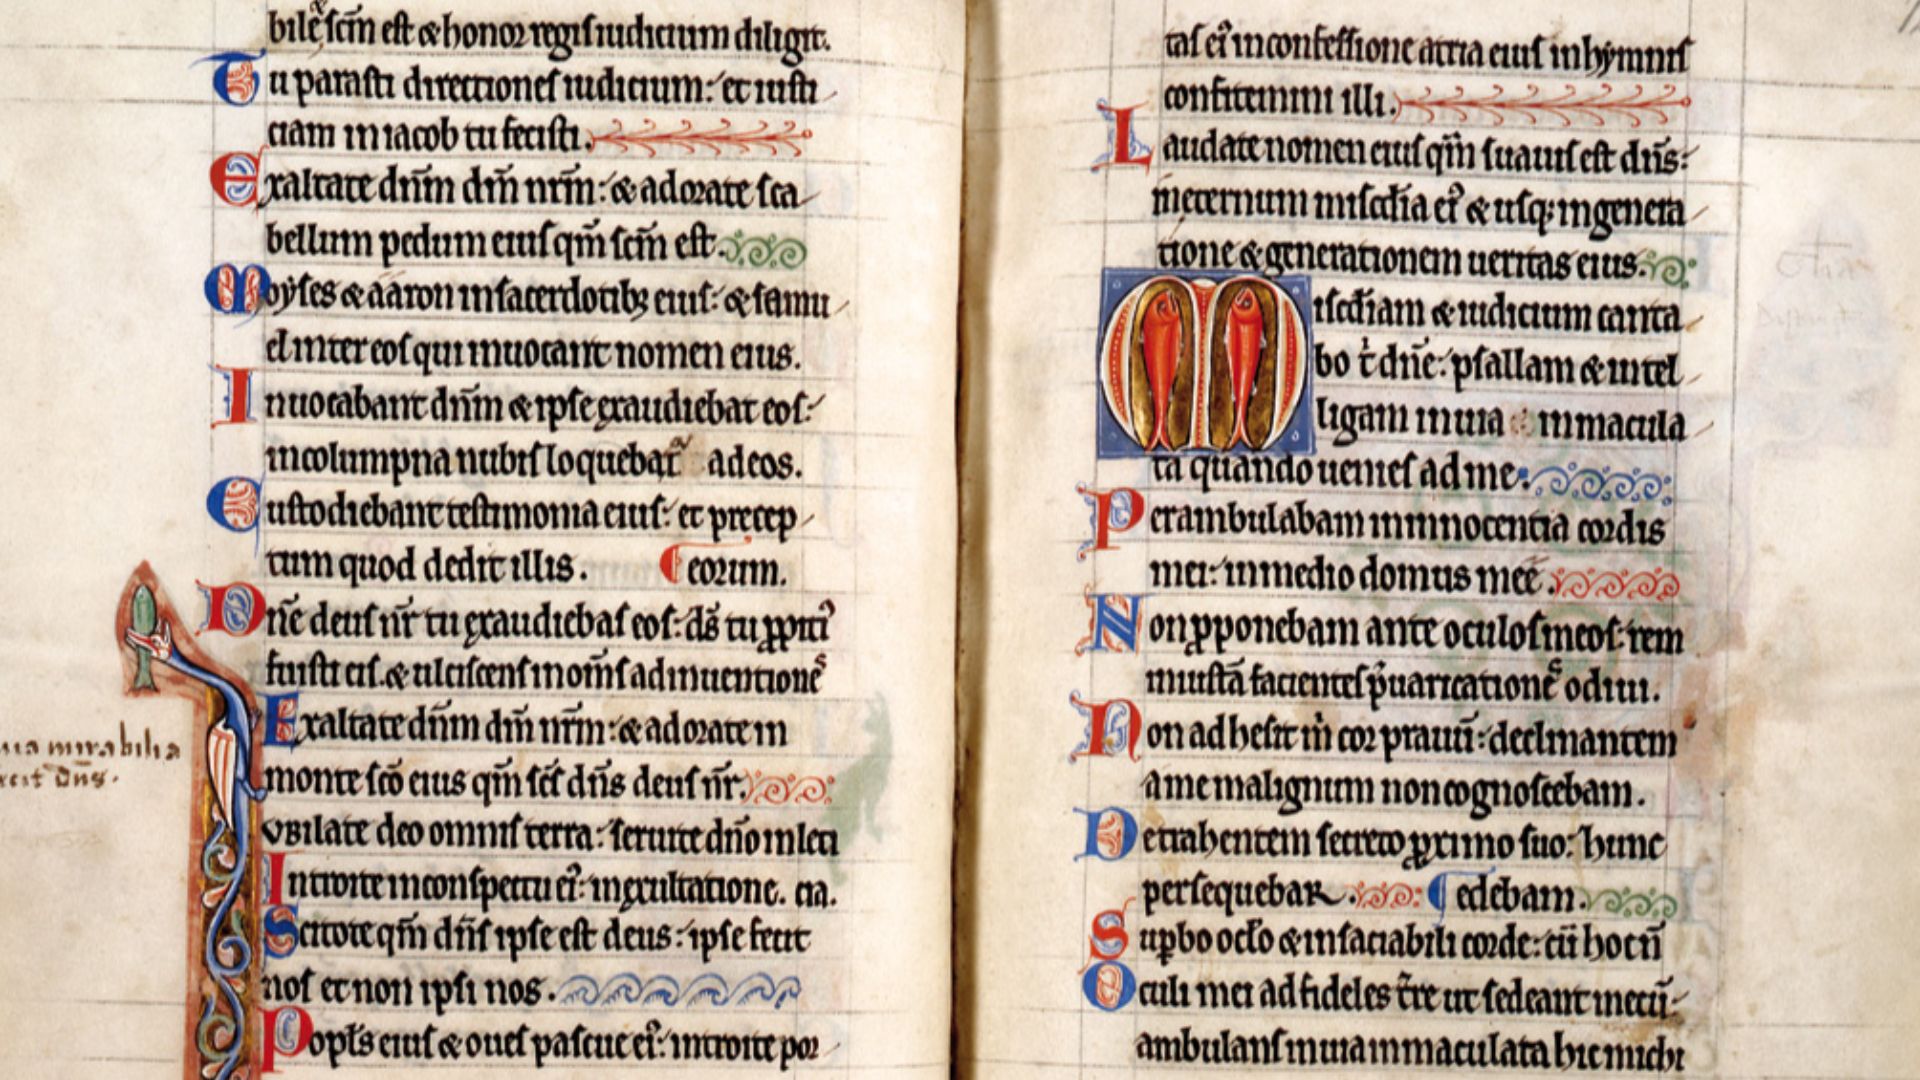 bilẽ scm̃ est & honor regis iudicium diligit.
Tu parasti directiones iudicium: et iusti
ciam in iacob tu fecisti.
Exaltate dnm̃ dm̃ nrm̃: & adorate sca
bellum pedum eius qm̃ scm̃ est.
Moyses & aaron in sacerdotibꝫ eius: & samu
el inter eos qui inuocant nomen eius.
Inuocabant dnm̃ & ipse exaudiebat eos:
in columpna nubis loquebat᷑ ad eos.
Custodiebant testimonia eius: et precep
tum quod dedit illis. eorum.
Dnẽ deus nr̃ tu exaudiebas eos: ds̃ tu ꝓpiciꝰ
fuisti eis. & ulciscens in om̃s adinuentionẽ
Exaltate dnm̃ dm̃ nrm̃: & adorate in
monte scõ eius qm̃ scs̃ dns̃ deus nr̃.
uia mirabilia
dns̃.
VBILATE deo omnis terra: seruite dnõ in leti
Introite in conspectu eiꝰ: in exultatione. cia.
Scitote qm̃ dns̃ ipse est deus: ipse fecit
nos et non ipsi nos.
Popls̃ eius & oues pascue eiꝰ: introite por
tas eiꝰ in confessione atria eius in hymnis
confitemini illi.
Laudate nomen eius qm̃ suauis est dns̃:
in eternum misc̃dia eiꝰ & usqꝫ in genera
tione & generationem ueritas eius.
Misc̃diam & iudicium canta
bo t̃ dnẽ: psallam & intel
ligam in uia inmacula
ta quando uenies ad me.
Perambulabam in innocentia cordis
mei: in medio domus meẽ.
Non ꝓponebam ante oculos meos: rem
iniustã facientes p̃uaricationẽ odiui.
Non adhesit m̃ cor prauũ: declinantem
a me malignum non cognoscebam.
Detrahentem secreto ꝓximo suo: hunc
persequebar. edebam.
Suꝑbo oclõ & insaciabili corde: cũ hoc ñ
Oculi mei ad fideles tr̃e ut sedeant mecũ:
ambulans in uia inmaculata hic michi